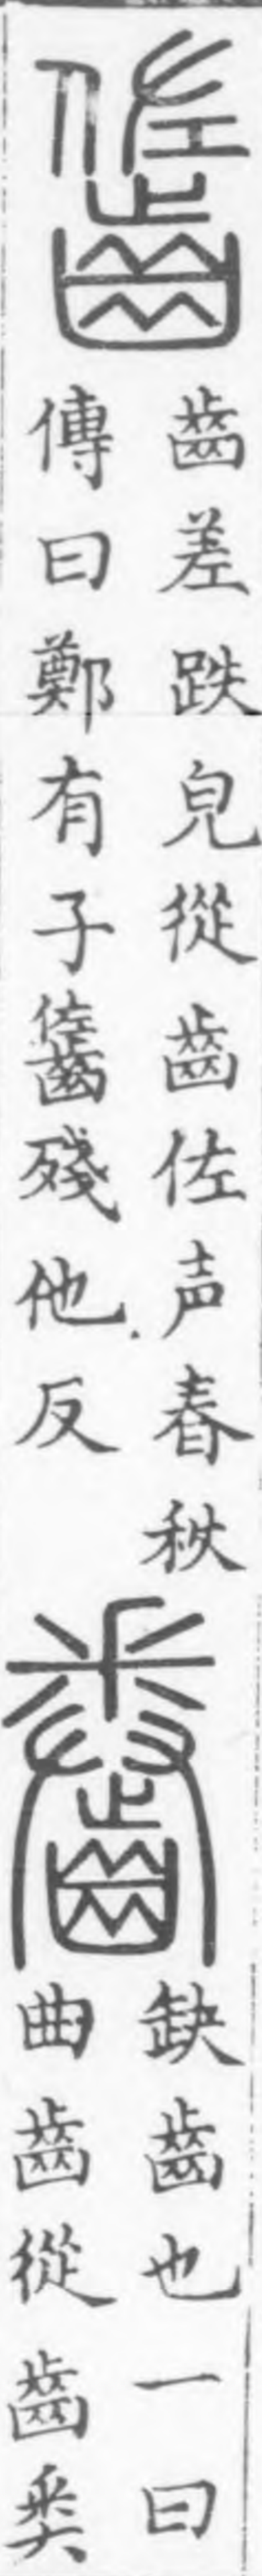 齹
齒差跌皃從齒佐声春秋
傳曰鄭有子齹殘他反
齤
缺齒也一曰
曲齒從齒𢍏